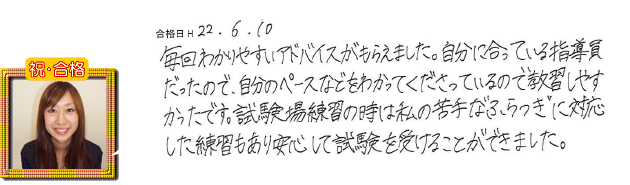 合格日 H 22.6.10
祝・合格
毎回わかりやすいアドバイスがもらえました。自分に合っている指導員
だったので、自分のペースなどをわかってくださっているので教習しやす
かったです。試験場練習の時は私の苦手な“ふらつき”に対応
した練習もあり安心して試験を受けることができました。